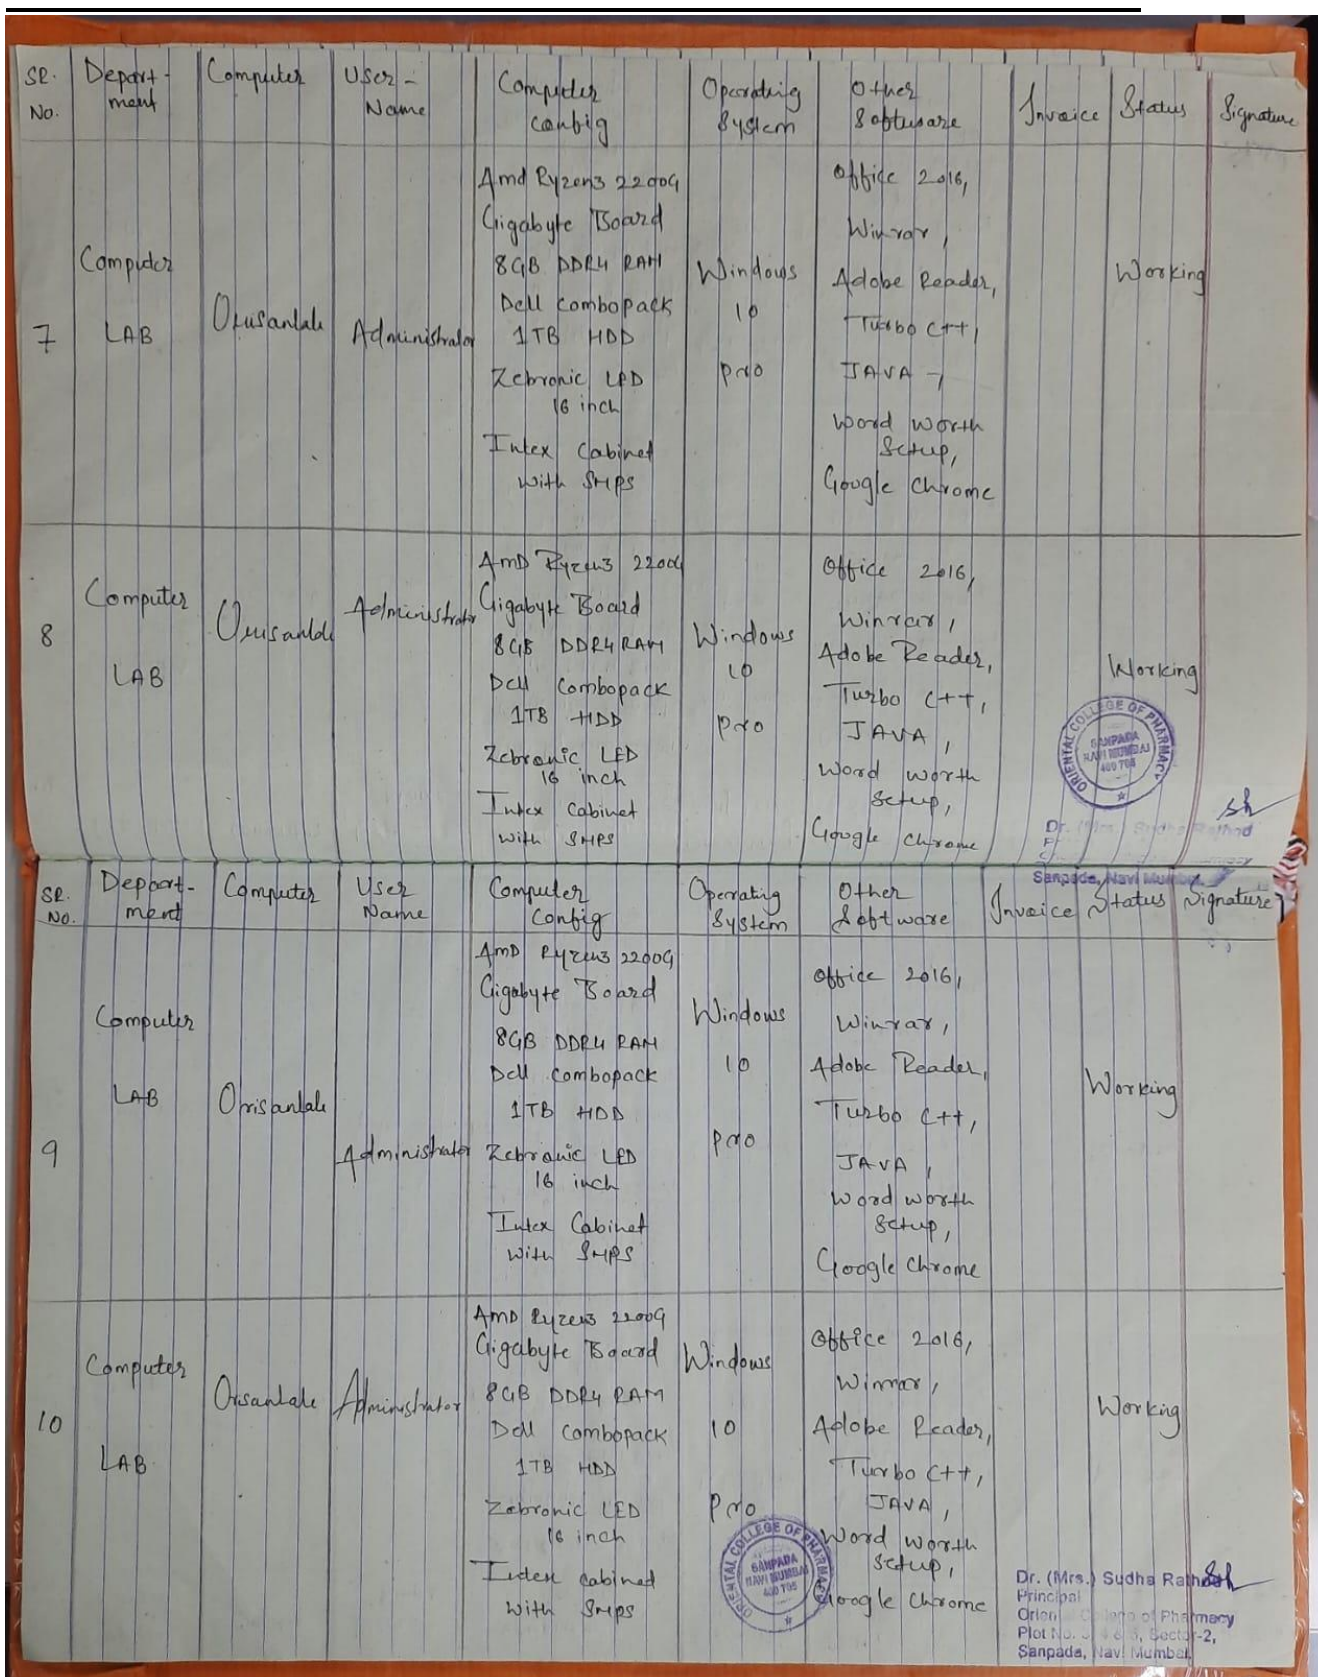 SR. No.
Depart-ment
Computer
User-Name
Computer Config
Operating System
Other Software
Invoice
Status
Signature
7
Computer
LAB
Administrator
Amd Ryzen3 2200G
Gigabyte Board
8GB DDR4 RAM
Dell Combopack
1TB HDD
Zebronic LED
16 inch
Intex Cabinet
With SMPS
Windows
10
Pro
Office 2016,
Winrar,
Adobe Reader,
Turbo C++,
JAVA -,
Word Worth
Setup,
Google Chrome
Working
8
Computer
LAB
Administrator
AMD Ryzen3 2200G
Gigabyte Board
8GB DDR4 RAM
Dell Combopack
1TB HDD
Zebronic LED
16 inch
Intex Cabinet
With SMPS
Windows
10
Pro
Office 2016,
Winrar,
Adobe Reader,
Turbo C++,
JAVA,
Word Worth
Setup,
Google Chrome
Working
ORIENTAL COLLEGE OF PHARMACY
SANPADA
NAVI MUMBAI
400 705
Dr. (Mrs.) Sudha Rathod
Sanpada, Navi Mumbai.
SR. No.
Depart-ment
Computer
User Name
Computer Config
Operating System
Other Software
Invoice
Status
Signature
9
Computer
LAB
Administrator
AMD Ryzen3 2200G
Gigabyte Board
8GB DDR4 RAM
Dell Combopack
1TB HDD
Zebronic LED
16 inch
Intex Cabinet
With SMPS
Windows
10
Pro
Office 2016,
Winrar,
Adobe Reader,
Turbo C++,
JAVA,
Word Worth
Setup,
Google Chrome
Working
10
Computer
LAB
Administrator
AMD Ryzen3 2200G
Gigabyte Board
8GB DDR4 RAM
Dell Combopack
1TB HDD
Zebronic LED
16 inch
Intex Cabined
With SMPS
Windows
10
Pro
Office 2016,
Winrar,
Adobe Reader,
Turbo C++,
JAVA,
Word Worth
Setup,
Google Chrome
Working
ORIENTAL COLLEGE OF PHARMACY
SANPADA
NAVI MUMBAI
400 705
Dr. (Mrs.) Sudha Rathod
Principal
Oriental College of Pharmacy
Plot No. Sector-2,
Sanpada, Navi Mumbai.